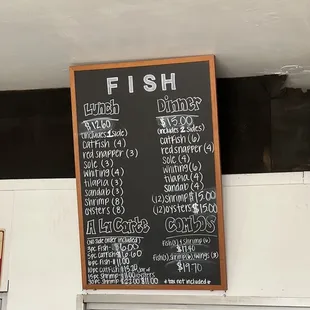 FISH
Lunch
$12.60
(includes 1 side)
Catfish (4)
red snapper (3)
Sole (3)
whiting (3)
tilapia (3)
sandab (3)
Shrimp (8)
oysters (8)
Dinner
$15.00
(includes 2 sides)
Catfish (6)
red snapper (4)
Sole (4)
whiting (6)
tilapia (4)
sandab (4)
(12) shrimp $15.00
(12) oysters $15.00
A La Carte
(no side order included)
3pc Fish - $6.00
3pc Catfish
6pc Fish - $11.00
10pc Catfish
Combos
Fish (3) & Shrimp (6)
$17.40
$19.70
* tax not included *